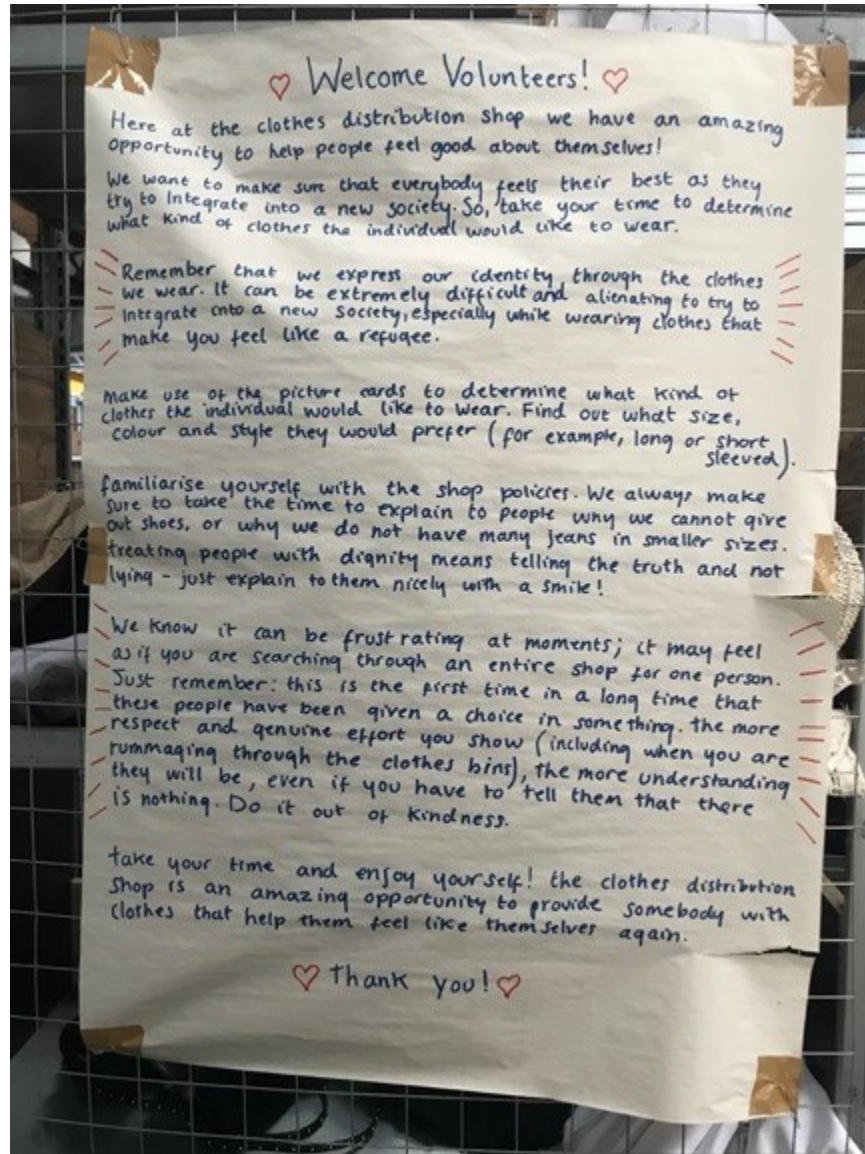 Welcome Volunteers!
Here at the clothes distribution shop we have an amazing
opportunity to help people feel good about themselves!
We want to make sure that everybody feels their best as they
try to Integrate into a new society. So, take your time to determine
what kind of clothes the individual would like to wear.
Remember that we express our identity through the clothes
we wear. It can be extremely difficult and alienating to try to
Integrate into a new society, especially while wearing clothes that
make you feel like a refugee.
make use of the picture cards to determine what kind of
clothes the individual would like to wear. Find out what size,
colour and style they would prefer (for example, long or short
sleeved).
familiarise yourself with the shop policies. We always make
sure to take the time to explain to people why we cannot give
out shoes, or why we do not have many jeans in smaller sizes.
treating people with dignity means telling the truth and not
lying - just explain to them nicely with a smile!
We know it can be frustrating at moments; it may feel
as if you are searching through an entire shop for one person.
Just remember: this is the first time in a long time that
these people have been given a choice in something. the more
respect and genuine effort you show (including when you are
rummaging through the clothes bins), the more understanding
they will be, even if you have to tell them that there
is nothing. Do it out of kindness.
take your time and enjoy yourself! the clothes distribution
shop is an amazing opportunity to provide somebody with
clothes that help them feel like themselves again.
Thank you!